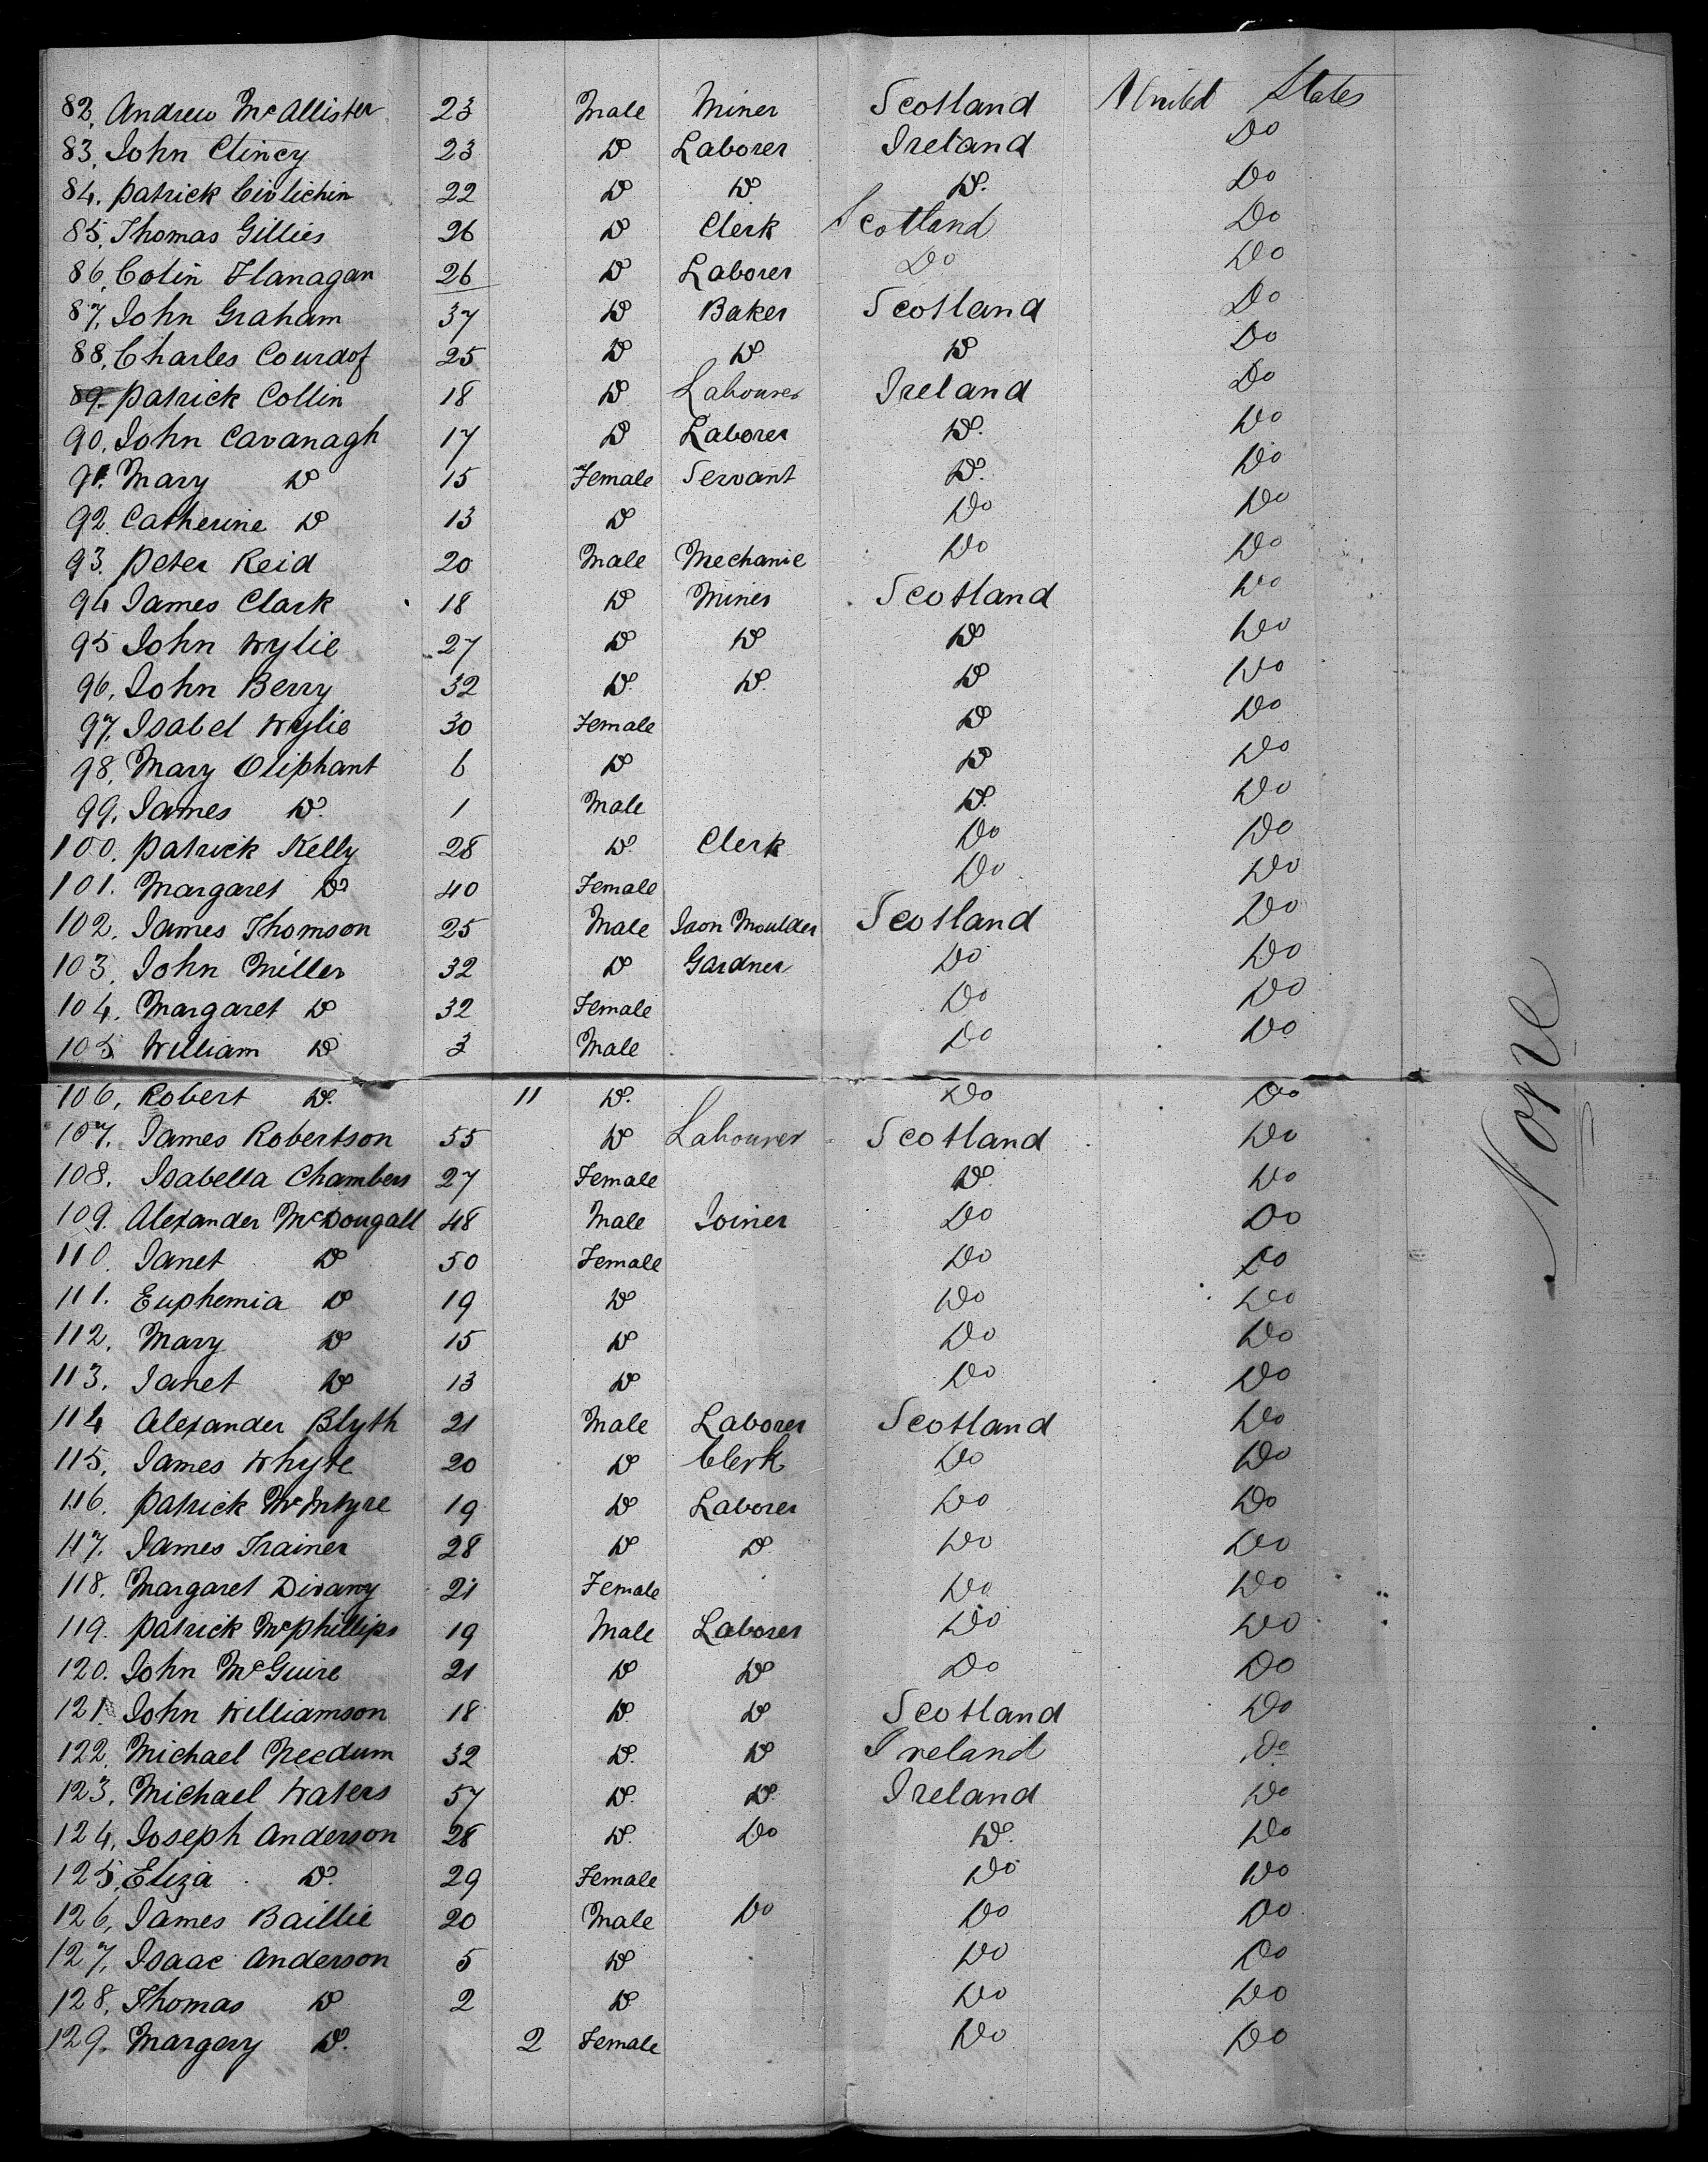 82. Andrew McAllister 23 Male Miner Scotland United States
83. John Clincy 23 Do Laborer Ireland Do
84. Patrick 22 Do Do Do. Do
85. Thomas Gillies 26 Do Clerk Scotland Do
86. Colin Flanagan 26 Do Laborer Do Do
87. John Graham 37 Do Baker Scotland Do
88. Charles 25 Do Do Do Do
89. Patrick Collin 18 Do Labourer Ireland Do
90. John Cavanagh 17 Do Laborer Do. Do
91. Mary Do 15 Female Servant Do. Do
92. Catherine Do 13 Do Do Do
93. Peter Reid 20 Male Mechanic Do Do
94 James Clark 18 Do Miner Scotland Do
95 John Wylie 27 Do Do Do Do
96. John Berry 32 Do. Do. Do Do
97. Isabel Wylie 30 Female Do Do
98. Mary Oliphant 6 Do Do Do
99. James Do. 1 Male Do. Do
100. Patrick Kelly 28 Do Clerk Do Do
101. Margaret Do 40 Female Do Do
102. James Thomson 25 Male Iron Moulder Scotland Do
103. John Miller 32 Do Gardner Do Do
104. Margaret Do 32 Female Do Do
105 William Do 3 Male Do Do
106. Robert Do. 11 Do. Do Do
107. James Robertson 55 Do Labourer Scotland Do
108. Isabella Chambers 27 Female Do. Do
109. Alexander McDougall 48 Male Joiner Do Do
110. Janet Do 50 Female Do Do
111. Euphemia Do 19 Do Do Do
112. Mary Do 15 Do Do Do
113. Janet Do 13 Do Do Do
114 Alexander Blyth 21 Male Laborer Scotland Do
115. James Whyte 20 Do Clerk Do Do
116. Patrick McIntyre 19 Do Laborer Do Do
117. James Trainer 28 Do Do Do Do
118. Margaret 21 Female Do Do
119. Patrick McPhillips 19 Male Laborer Do Do
120. John McGuire 21 Do Do Do Do
121. John Williamson 18 Do Do Scotland Do
122. Michael Needum 32 Do. Do Ireland Do
123. Michael Waters 57 Do. Do. Ireland Do
124. Joseph Anderson 28 Do. Do Do. Do
125. Eliza Do. 29 Female Do Do
126. James Baillie 20 Male Do Do Do
127. Isaac Anderson 5 Do Do Do
128. Thomas Do 2 Do Do Do
129. Margery Do. 2 Female Do Do
None